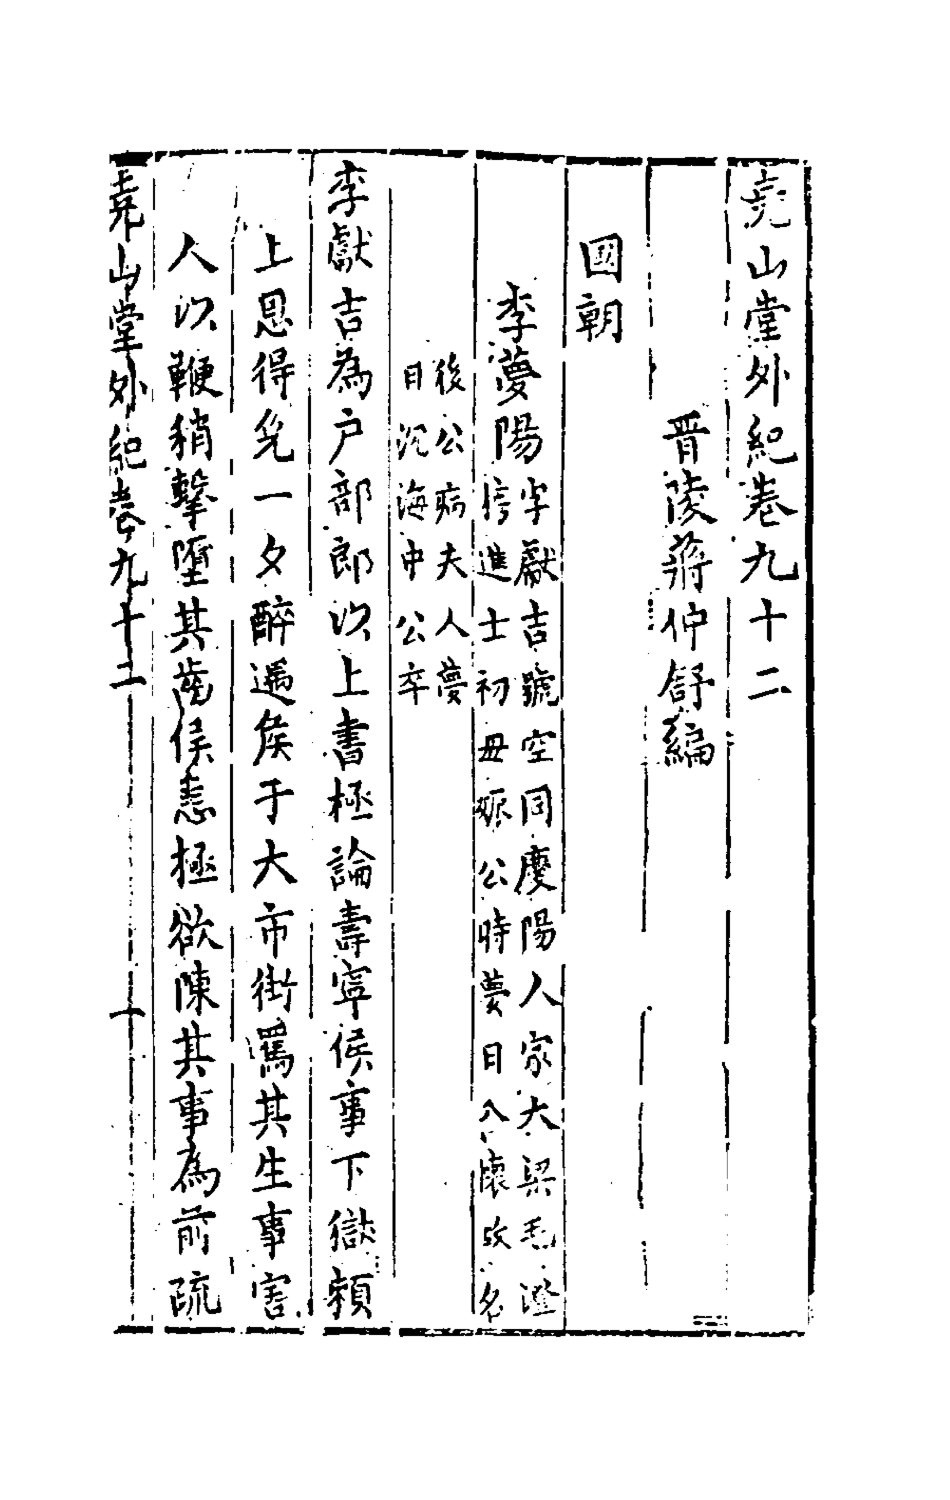 堯山堂外紀卷九十二
晋陵蔣仲舒編
國朝
李夢陽
字獻吉號空同慶陽人家大梁毛澄
榜進士初毋娠公時夢日入懷故名
後公病夫人夢
日沉海中公卒
李獻吉為户部郎以上書極論壽寜侯事下獄賴
上恩得免一夕醉遇侯于大市街罵其生事害
人以鞭稍擊墮其齒侯恚極欲陳其事為前疏
堯山堂外紀卷九十二
一